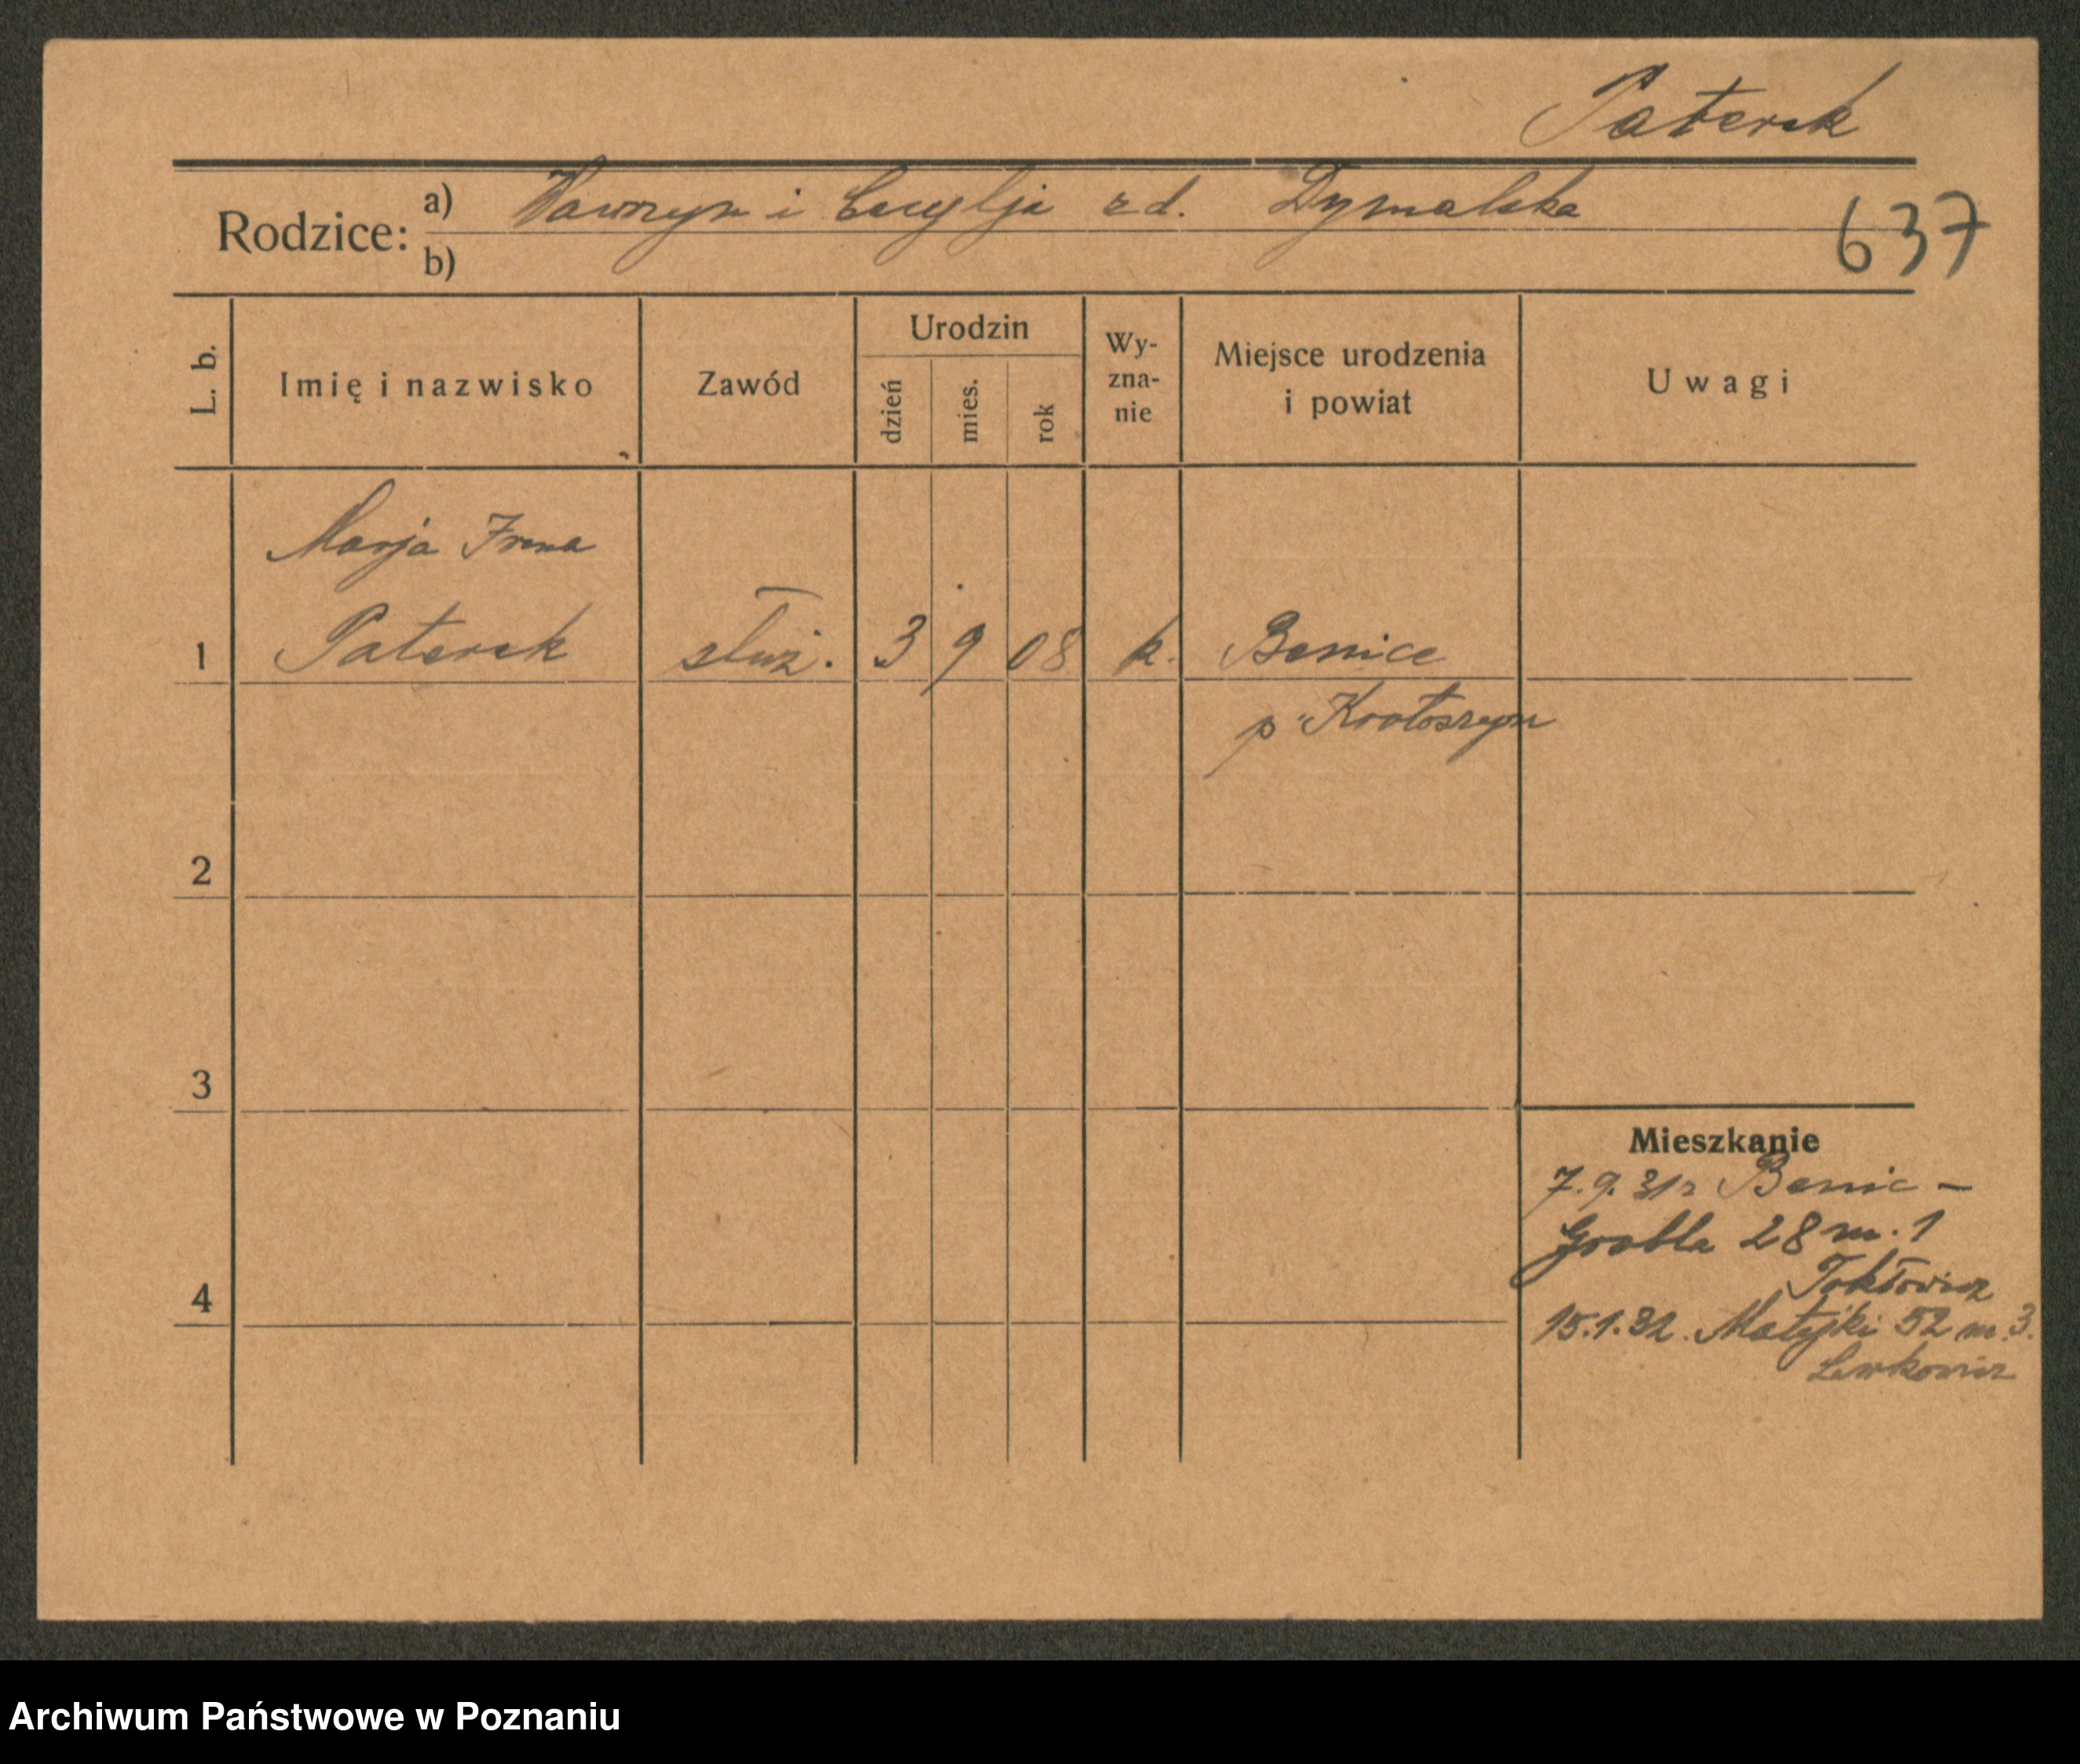 Paterek
Rodzice: a) Wawrzyn i Cecylja z d. Dymalska
b)
637
L. b. Imię i nazwisko Zawód Urodzin dzień mies. rok Wy-zna-nie Miejsce urodzenia i powiat Uwagi
Marja Irena
1 Paterek służ. 3 9 08 k. Benice
p Krotoszyn
2
3
Mieszkanie
7.9.31 r Benic –
Grobla 28 m. 1
4
15.1.32. Matejki 52 m. 3.
Lewkowicz
Archiwum Państwowe w Poznaniu